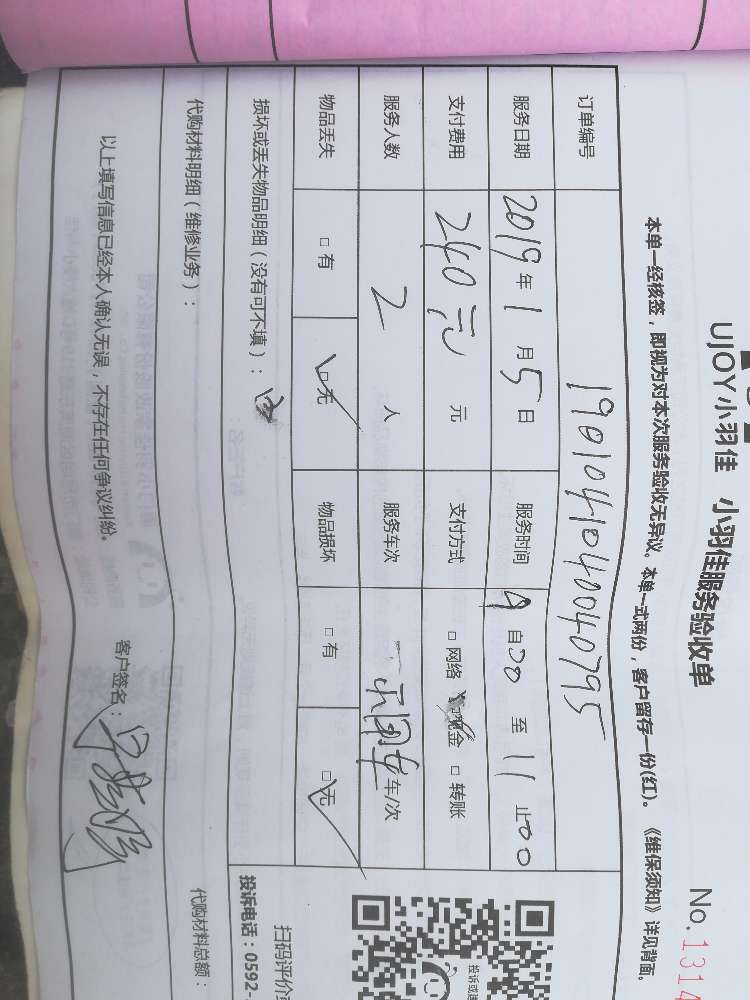 UJOY小羽佳 小羽佳服务验收单
No.1314
本单一经核签，即视为对本次服务验收无异议。本单一式两份，客户留存一份(红)。《维保须知》详见背面。
订单编号 1901041040040795
服务日期 2019年1月5日 服务时间 9自00至11止00
支付费用 240元 元 支付方式 □网络 □现金 □转账
服务人数 2 人 服务车次 车/次
物品丢失 □有 □无 物品损坏 □有 □无
损坏或丢失物品明细（没有可不填）：
代购材料明细（维修业务）：
代购材料总额：
以上填写信息已经本人确认无误，不存在任何争议纠纷。
客户签名：
扫码评价
投诉或建
投诉电话：0592-